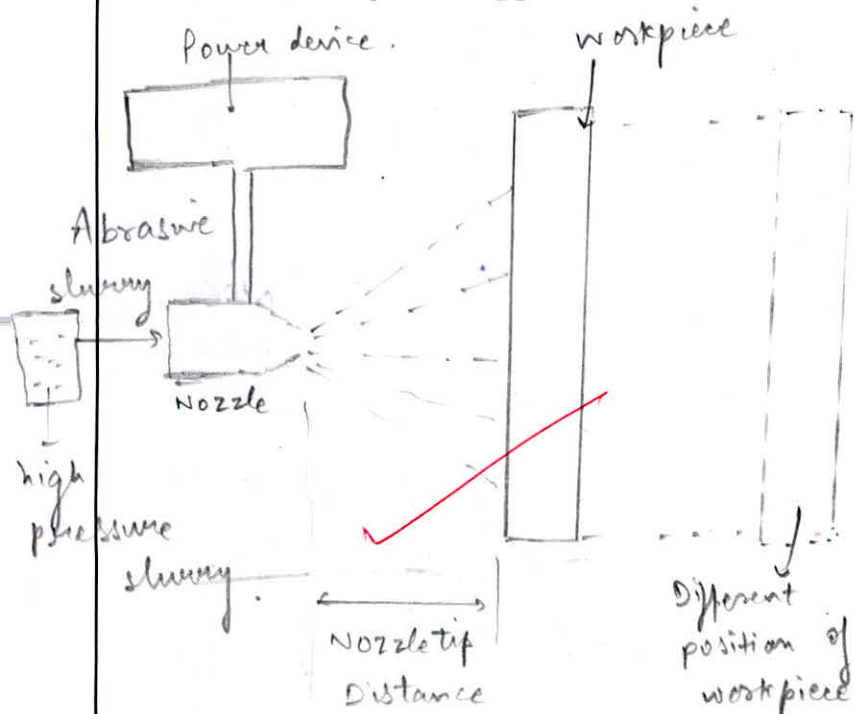 Power device.
workpiece
Abrasive
slurry
Nozzle
high
pressure
slurry.
Nozzle tip
Distance
Different
position of
workpiece